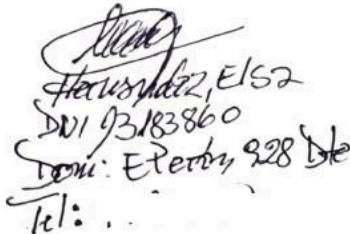 Hernandez, Elsa
DNI 93183860
Dom: E Perón 928 Dto
Tel: . .